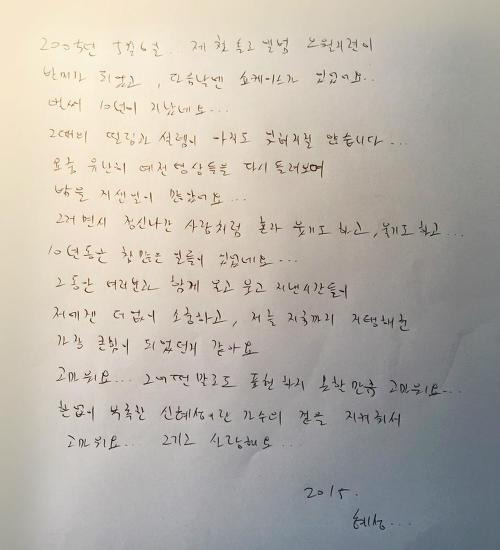 2005년 5월 6일.. 제 첫 솔로앨범 오월지련이
발매가 되었고, 다음날엔 쇼케이스가 있었어요..
벌써 10년이 지났네요...
그때의 떨림과 설렘이 아직도 잊혀지질 않습니다...
요즘 유난히 예전 영상들을 다시 돌려보며
밤을 지샌 날이 많았어요...
그러면서 정신나간 사람처럼 혼자 웃기도 하고, 울기도 하고...
10년동안 참 많은 일들이 있었네요...
그동안 여러분과 함께 울고 웃고 지낸 시간들이
저에겐 더없이 소중하고, 저를 지금까지 지탱해준
가장 큰 힘이 되었던거 같아요
고마워요... 그 어떤 말로도 표현하지 못할만큼 고마워요...
한없이 부족한 신혜성이란 가수의 곁을 지켜줘서
고마워요... 그리고 사랑해요...
2015.
혜성...